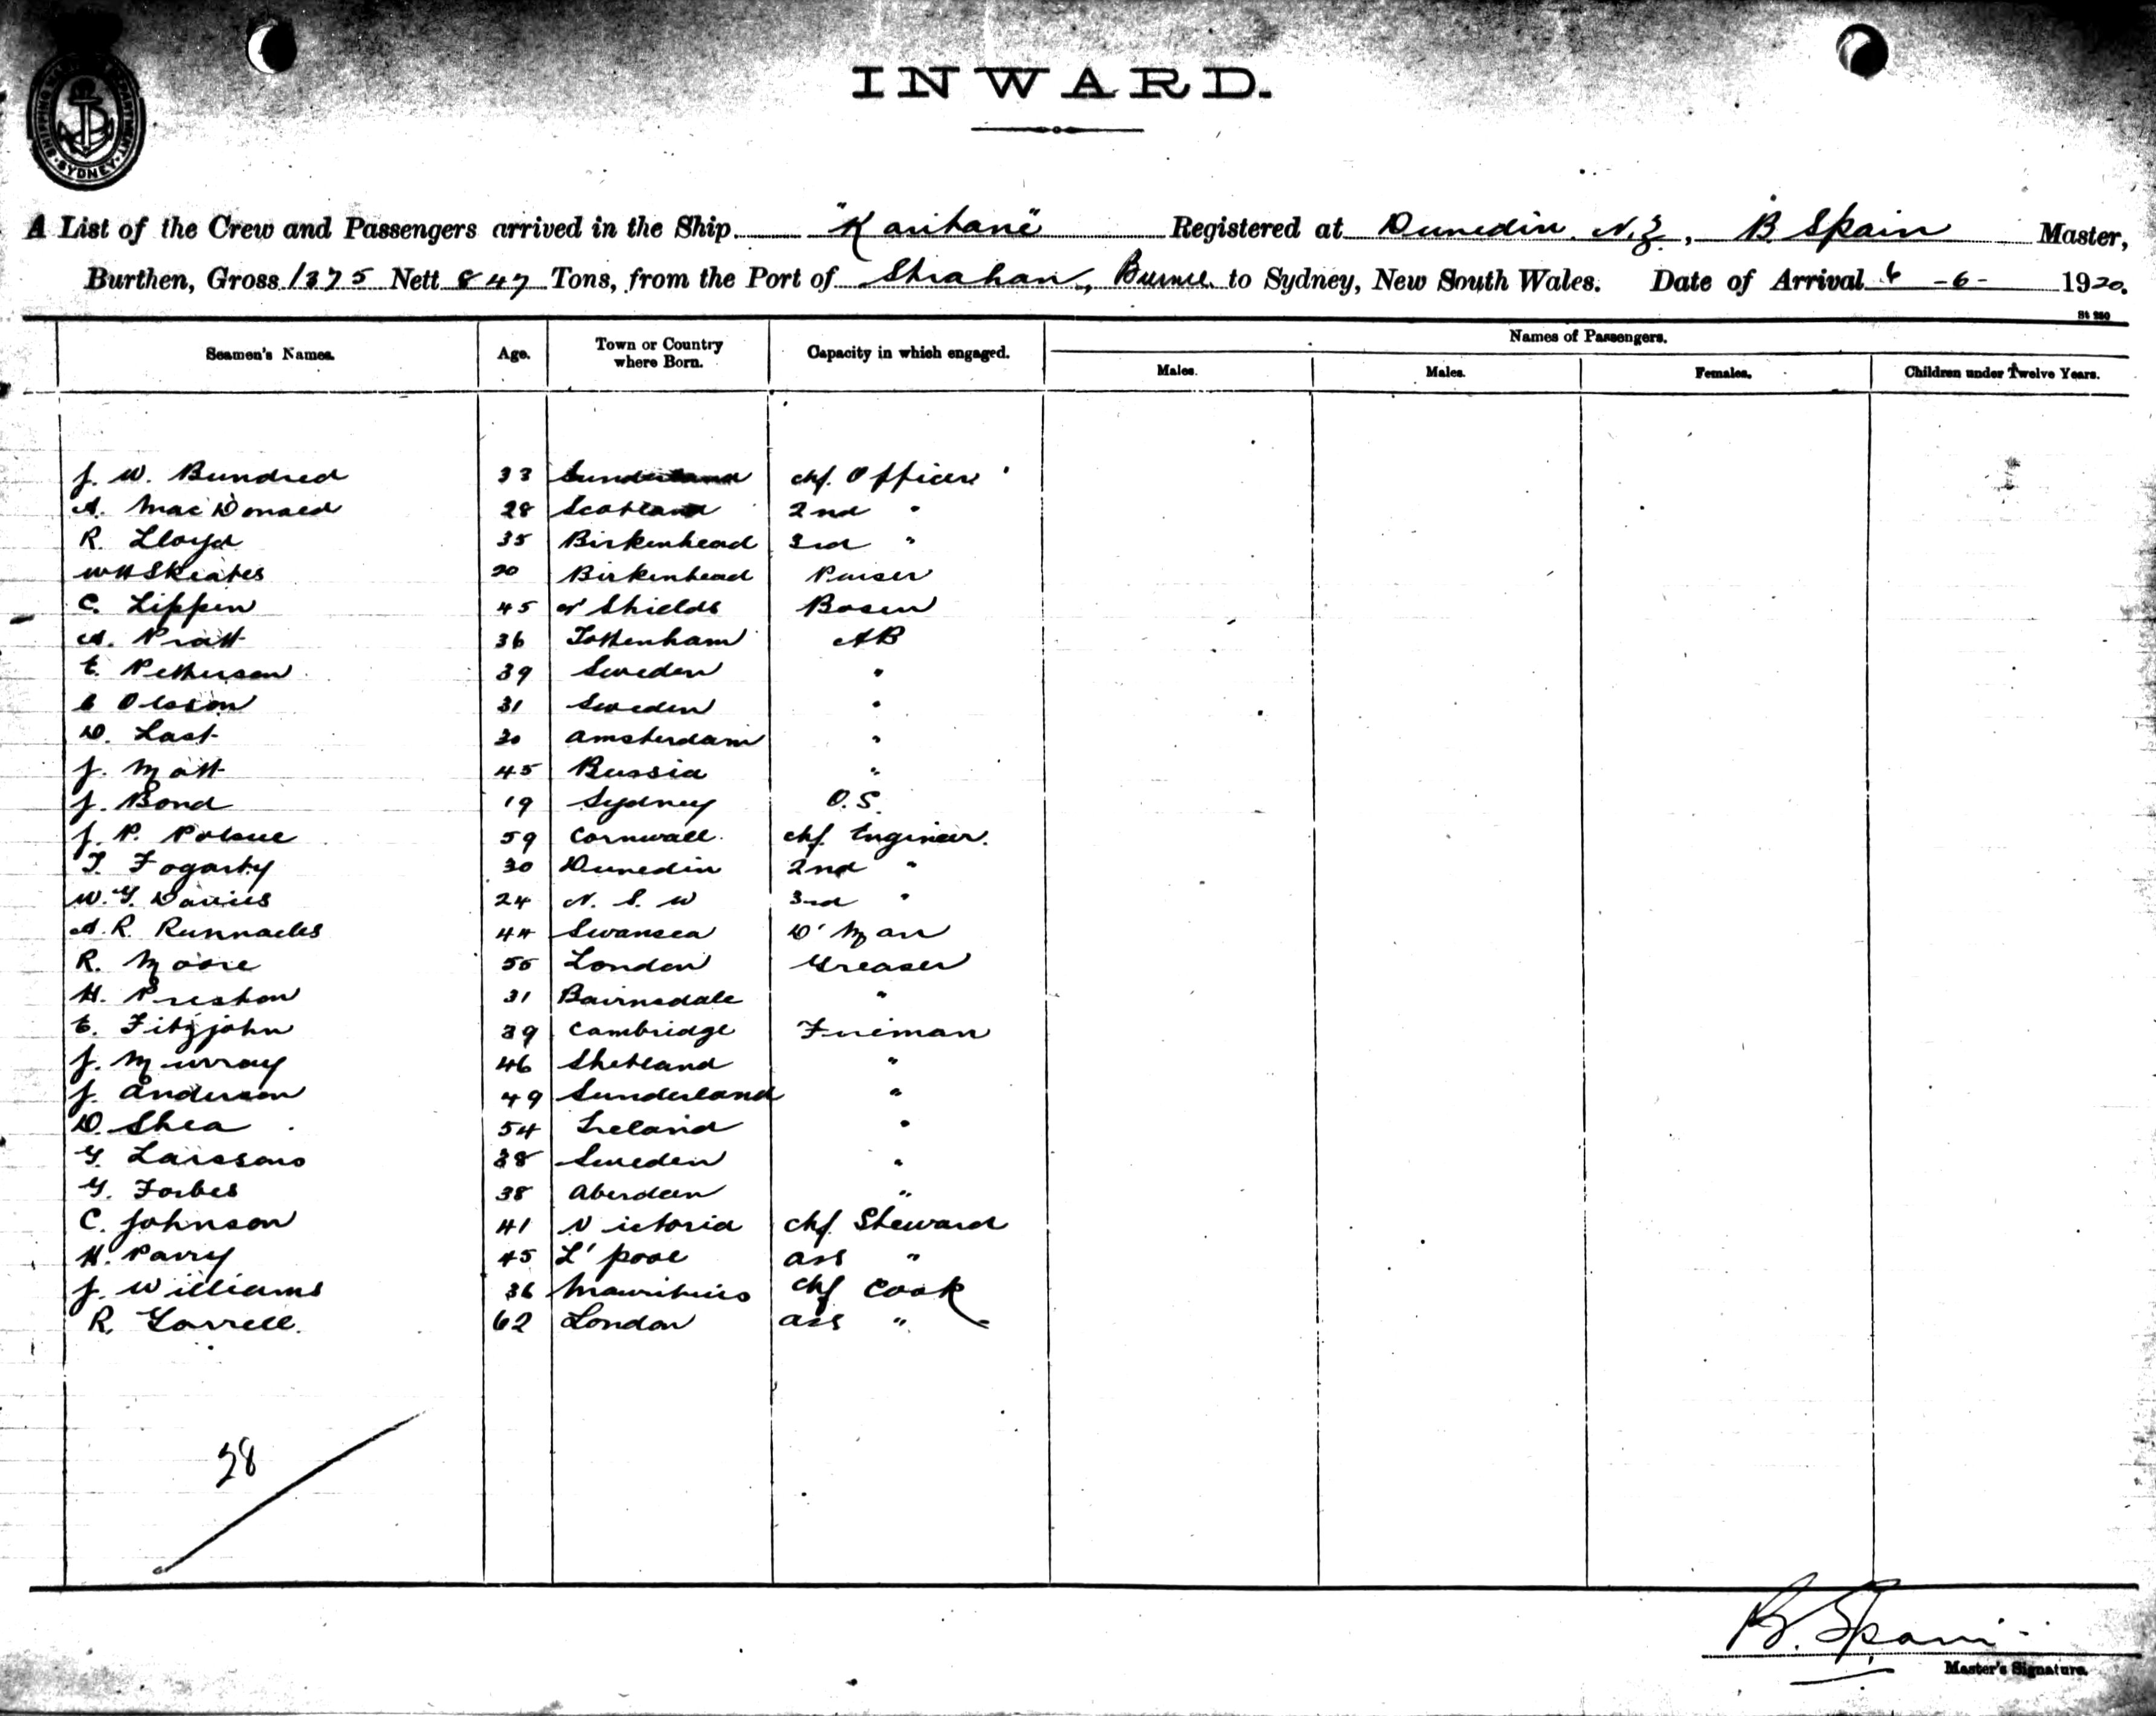 INWARD.
SHIPPING MASTER'S DEPARTMENT SYDNEY
A List of the Crew and Passengers arrived in the Ship "Karitane" Registered at Dunedin N.Z., B Spain Master,
Burthen, Gross 1375 Nett 847 Tons, from the Port of Strahan, Burnie to Sydney, New South Wales. Date of Arrival 6 -6- 1920.
St 280
Seamen's Names. Age. Town or Country where Born. Capacity in which engaged. Names of Passengers.
Males. Males. Females. Children under Twelve Years.
J. W. Bundred 33 Sunderland chf. Officer
A. MacDonald 28 Scotland 2nd "
R. Lloyd 35 Birkenhead 3rd "
W H Skeates 20 Birkenhead Purser
C. Lippen 45 N' Shields Bosun
A. Pratt 36 Tottenham AB
E. Petterson 39 Sweden "
C Olsson 31 Sweden "
D. Last 30 Amsterdam "
J. Matt 45 Russia "
J. Bond 19 Sydney O.S.
J. P. Polsue 59 Cornwall chf Engineer.
T. Fogarty 30 Dunedin 2nd "
W. G. Davies 24 N. S. W 3rd "
A. R. Runnacles 44 Swansea D' Man
R. Moore 50 London Greaser
H. Preston 31 Bairnsdale "
E. Fitzjohn 39 Cambridge Fireman
J. Murray 46 Shetland "
J. Anderson 49 Sunderland "
D. Shea 54 Ireland "
G. Larssons 38 Sweden "
G. Forbes 38 Aberdeen "
C. Johnson 41 Victoria chf Steward
H. Parry 45 L'pool ass "
J. Williams 36 Mauritius chf Cook
R. Gorrell. 62 London ass "
28
B. Spain
Master's Signature.